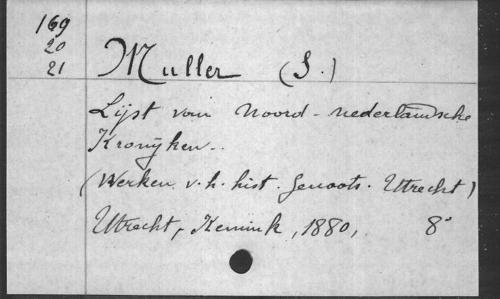 169
20
21
Muller (S.)
Lijst van Noord-nederlandsche
Kronijken.
(Werken v. h. hist. Genoots. Utrecht)
Utrecht, Kemink, 1880, 8°